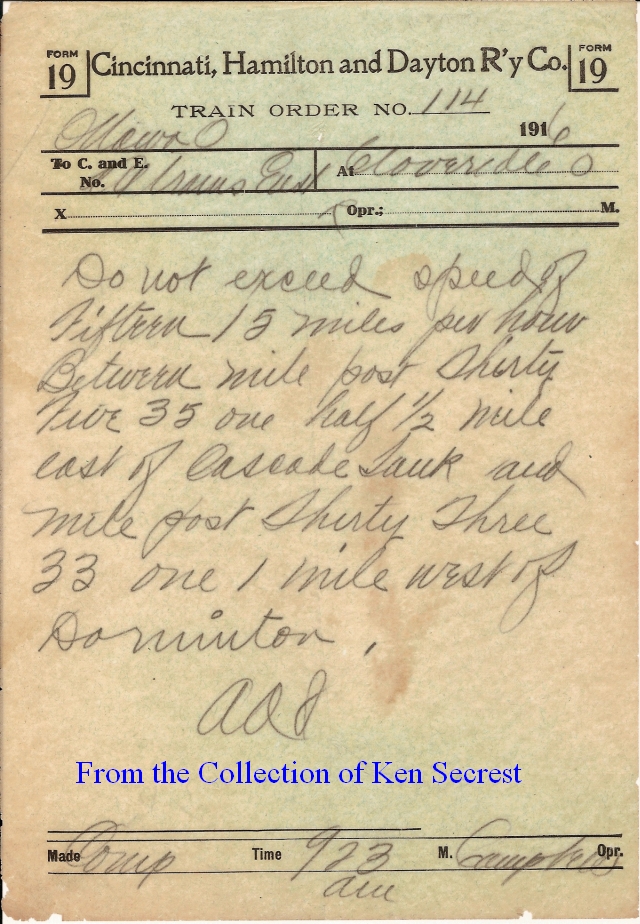 FORM 19 Cincinnati, Hamilton and Dayton R'y Co. FORM 19
TRAIN ORDER NO. 114
Ottawa O 1916
To C. and E.
No. All trains East At Cloverdale O
X Opr.; M.
Do not exceed speed of
Fifteen 15 miles per hour
Between mile post Thirty
Five 35 one half 1/2 mile
east of Cascade Tank and
mile post Thirty Three
33 one 1 mile west of
Dorninton.
From the Collection of Ken Secrest
Made Comp Time 923 M. Opr.
am